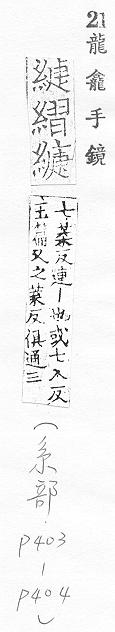 21 龍龕手鏡
緁
七葉反連丨也或七入反
玉篇又之葉反俱通三
（糸部．P403-P404）